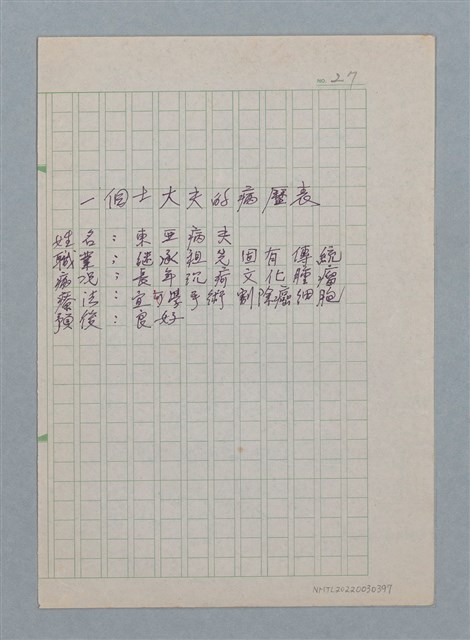 no. 27
一個士大夫的病歷表
姓名：東亞病夫
職業：継承祖先固有傳統
病況：長年沉疴文化腫瘤
療法：宜行學手術割除癌細胞
預後：良好
NMTL20220030397